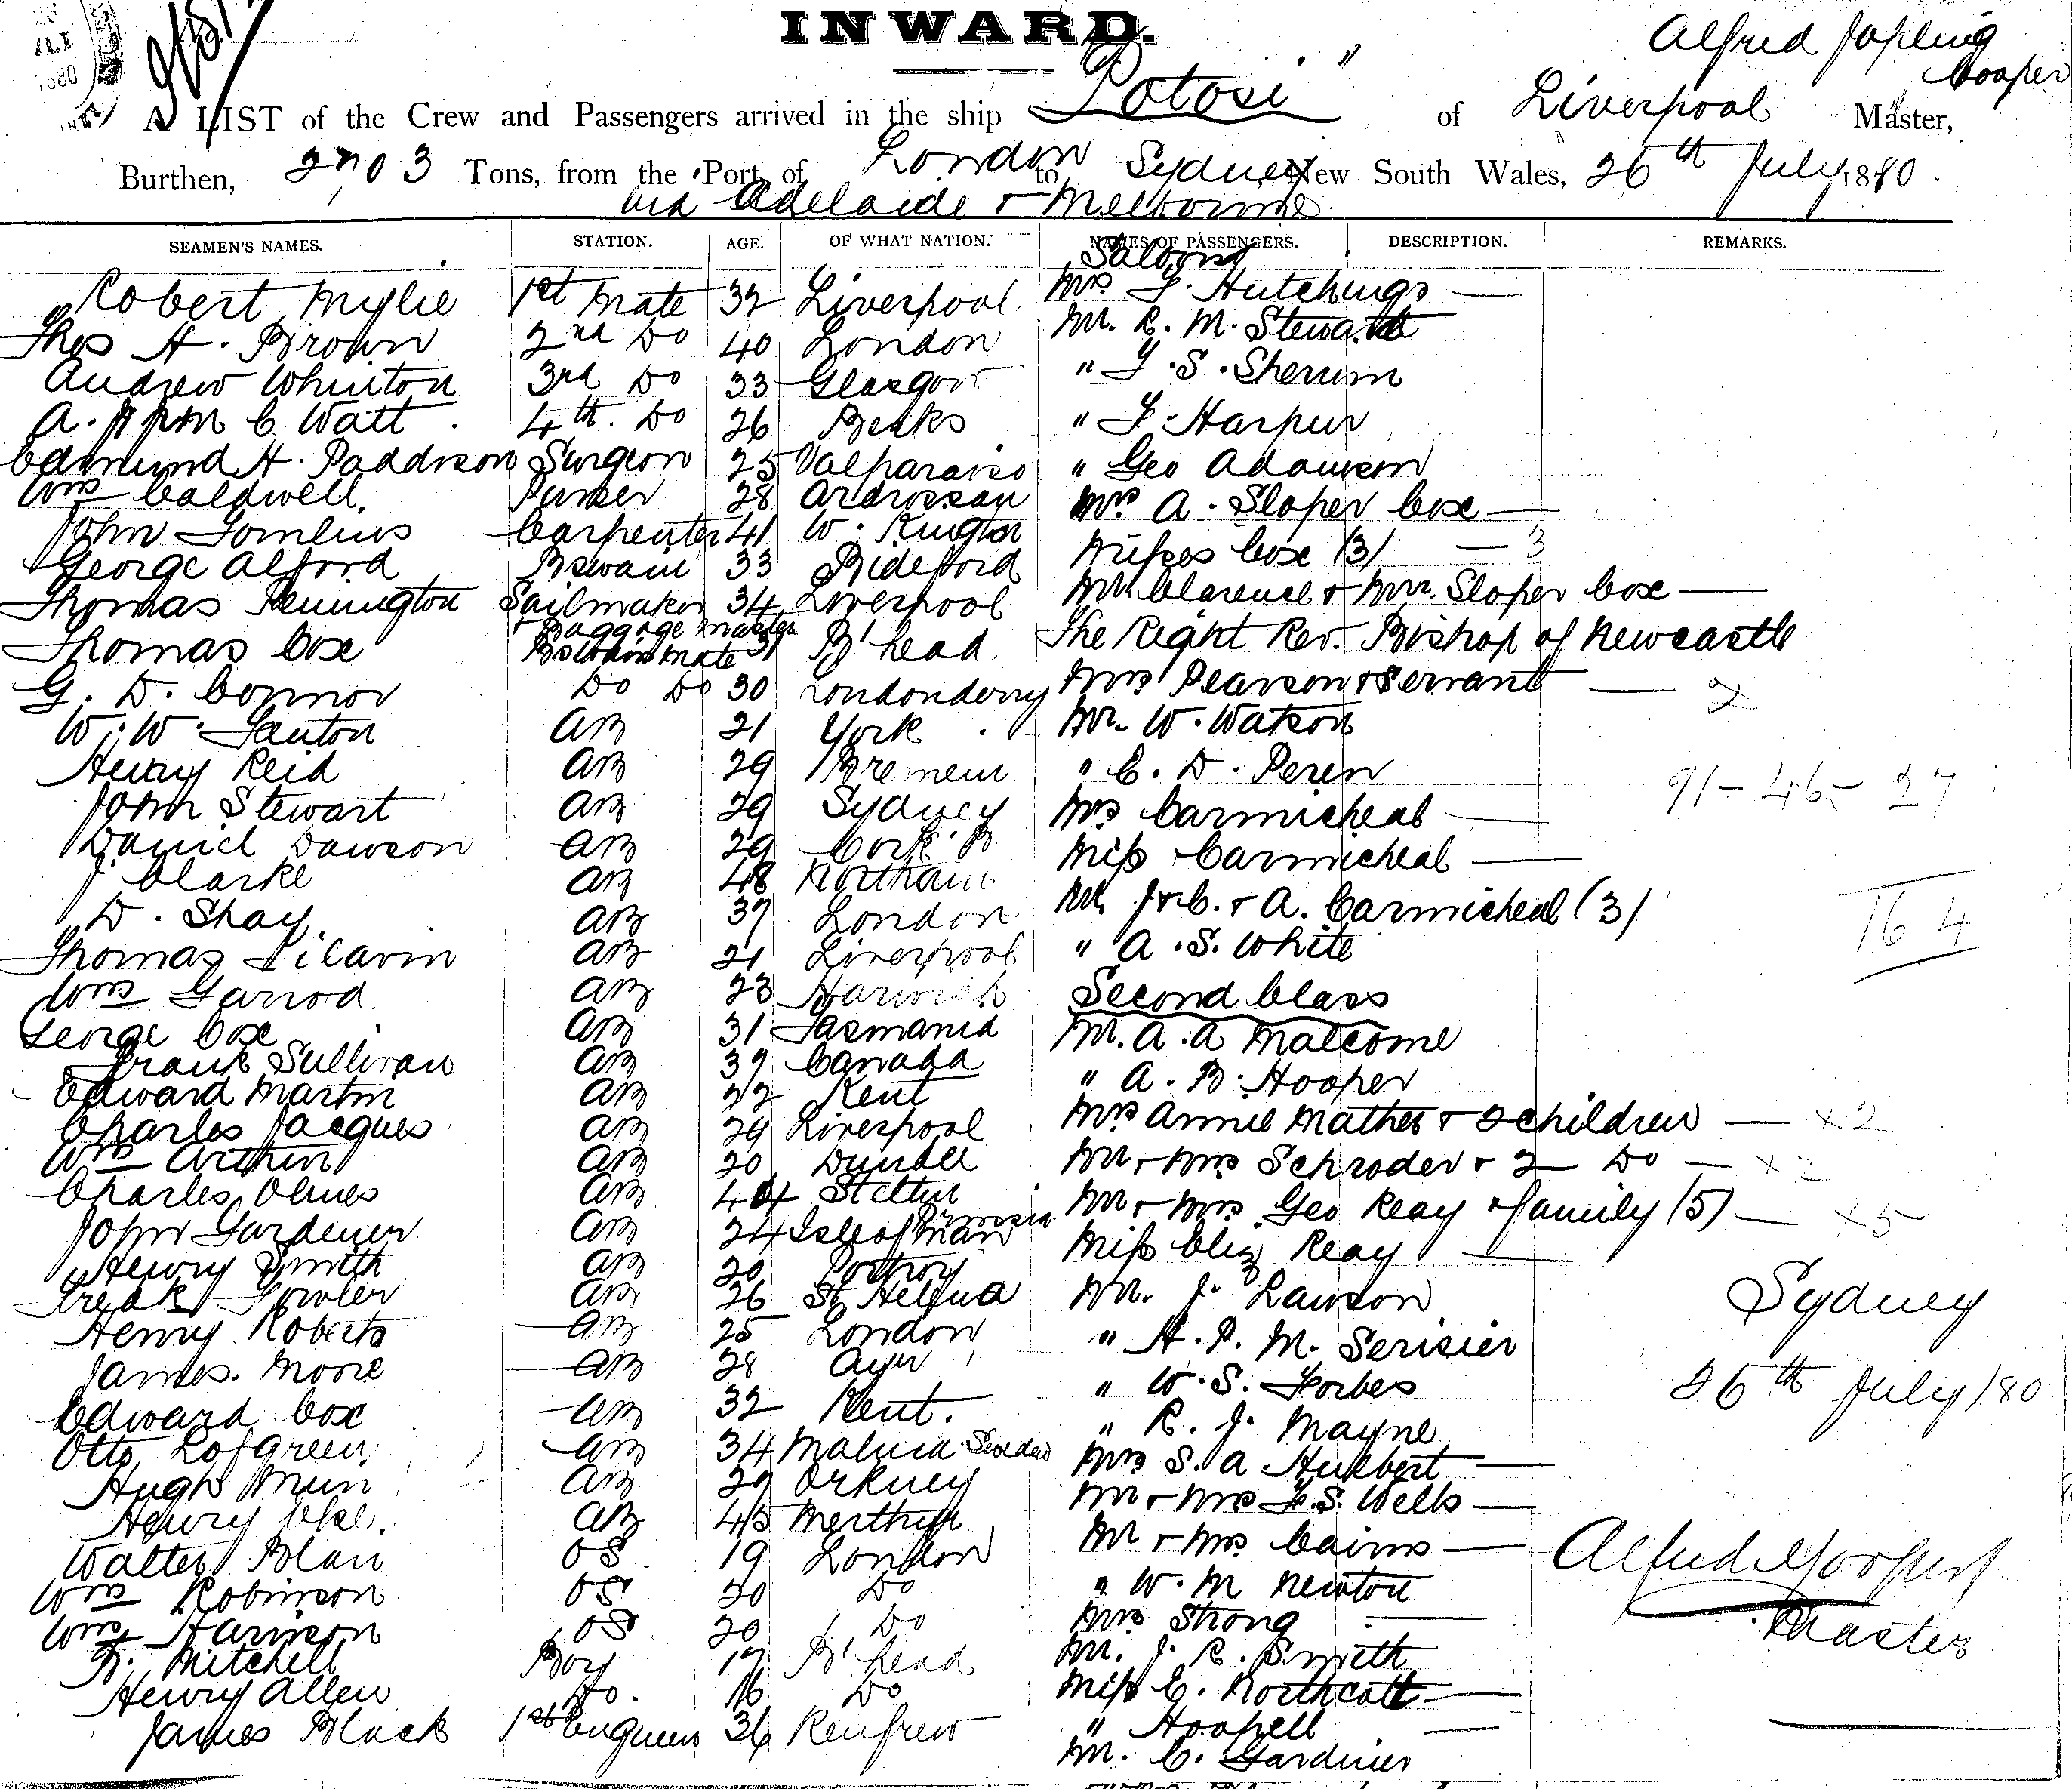 INWARD.
Alfred Jopling Cooper
A LIST of the Crew and Passengers arrived in the ship "Potosi" of Liverpool Master,
Burthen, 2703 Tons, from the Port of London to Sydney New South Wales, 26th July 1880.
via Adelaide & Melbourne
SEAMEN'S NAMES. STATION. AGE. OF WHAT NATION. NAMES OF PASSENGERS. DESCRIPTION. REMARKS.
Saloon
Robert Wylie 1st Mate 32 Liverpool Mrs F. Hutchings —
Thos H. Brown 2nd Do 40 London Mr. R. M. Steward
Andrew Whinton 3rd Do 33 Glasgow " S.
A. C Watt 4th Do 26 Berks " F. Harpur
Edmund H. Paddison Surgeon 25 Valparaiso " Geo Adamson
Wm Caldwell Purser 28 Ardrossan Mrs A. Sloper Cox —
John Tomlins Carpenter 41 W. Misses Cox (3) — 3
George Alford Bswain 33 Bideford Mr Clarence & Mr. Sloper Cox —
Thomas Pennington Sailmaker 34 Liverpool The Right Rev. Bishop of Newcastle
& Baggage Master
Thomas Cox Bswains Mate 31 B'head Mrs Pearson & Servant — 2
G. D. Connor Do Do 30 Londonderry Mr. W. Watson
W. W. Fenton AB 21 York " C. D. Peren
Henry Reid AB 29 Bremen Mrs Carmicheal —
91 - 46 - 27
John Stewart AB 29 Sydney Miss Carmicheal —
Daniel Dawson AB 29 Cork Mr J & C. & A. Carmicheal (3)
J Clarke AB 48 Northam " A. S. White
164
D. Shay AB 37 London
Thomas AB 21 Liverpool Second Class
Wm Garrod AB 23 Harwich M. A. A Malcome
George Cox AB 31 Tasmania " A. B. Hooper
Frank Sullivan AB 37 Canada Mrs Annie Mather & 2 children — x2
Edward Martin AB 22 Kent Mr & Mrs Schroder & 2 Do — x2
Charles Jacques AB 29 Liverpool Mr & Mrs Geo Reay & family (5) — x5
Wm Arthur AB 20 Dundee Miss Eliz Reay —
Charles AB 44 Stettin Prussia Mr. J. Lawson
John Gardener AB 24 Isle of Man " H. P. M. Serisier
Henry Smith AB 20 Portroy " W. S. Forbes
Sydney
Fredk Fowler AB 26 St Helena " R. J. Mayne
Henry Roberts AB 25 London Mrs S. A Hurbert —
26th July /80
James Moore AB 28 Ayr Mr & Mrs F. S. Wells —
Edward Cox AB 32 Kent. Mr & Mrs Cairns —
Otto Lofgreen AB 34 Sweden " W. M Newton
Hugh AB 29 Orkney Mrs Strong —
Henry AB 45 Merthyr Mr. J. R. Smith
Walter OS 19 London Miss C. Northcott —
Wm Robinson OS 20 Do " Hoopell —
Wm Harrison OS 20 Do Mr. C. Gardiner
Mitchell Boy 17 B'head
Henry Allen Do. 16 Do
James Black 1st Engineer 36 Renfrew
Alfred J Cooper
Master